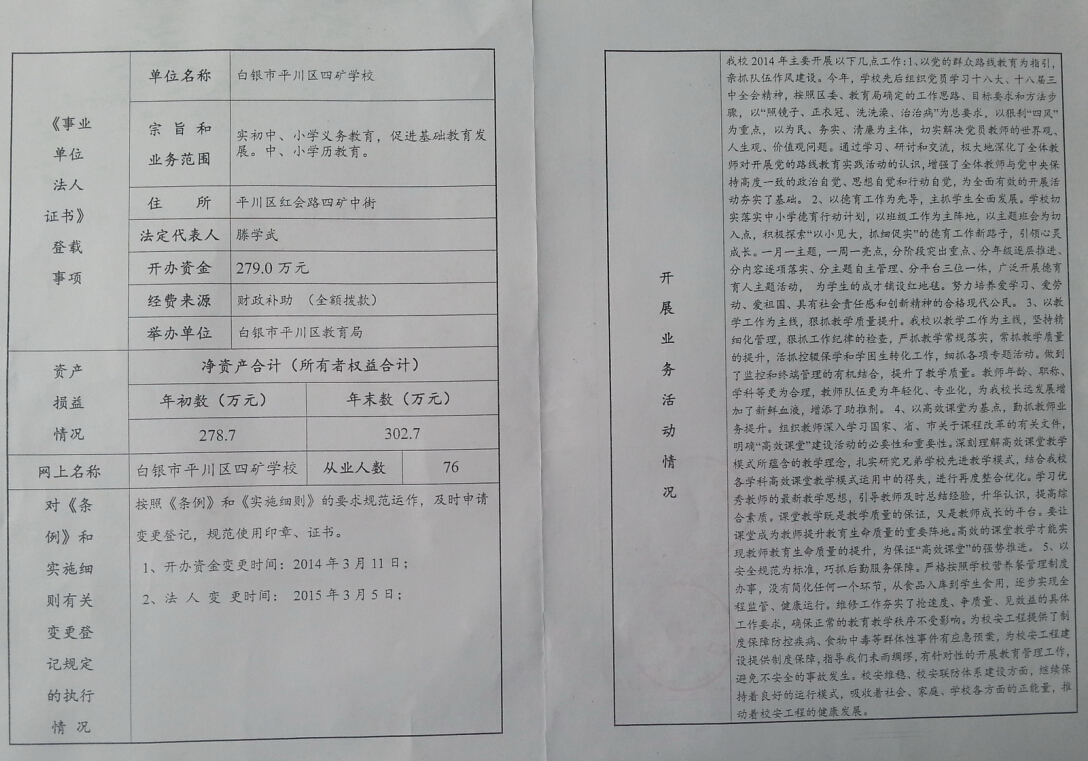 《事业
单位
法人
证书》
登载
事项
单位名称 白银市平川区四矿学校
宗旨和
业务范围
实初中、小学义务教育，促进基础教育发
展。中、小学历教育。
住 所 平川区红会路四矿中街
法定代表人 滕学武
开办资金 279.0 万元
经费来源 财政补助 （全额拨款）
举办单位 白银市平川区教育局
资产
损益
情况
净资产合计（所有者权益合计）
年初数（万元） 年末数（万元）
278.7 302.7
网上名称 白银市平川区四矿学校 从业人数 76
对《条
例》和
实施细
则有关
变更登
记规定
的执行
情 况
按照《条例》和《实施细则》的要求规范运作，及时申请
变更登记，规范使用印章、证书。
1、开办资金变更时间：2014 年 3 月 11 日；
2、法 人 变 更时间： 2015 年 3 月 5 日；
开
展
业
务
活
动
情
况
我校 2014 年主要开展以下几点工作：1、以党的群众路线教育为指引，
亲抓队伍作风建设。今年，学校先后组织党员学习十八大、十八届三
中全会精神，按照区委、教育局确定的工作思路、目标要求和方法步
骤，以“照镜子、正衣冠、洗洗澡、治治病”为总要求，以狠刹“四风”
为重点，以为民、务实、清廉为主体，切实解决党员教师的世界观、
人生观、价值观问题。通过学习、研讨和交流，极大地深化了全体教
师对开展党的路线教育实践活动的认识，增强了全体教师与党中央保
持高度一致的政治自觉、思想自觉和行动自觉，为全面有效的开展活
动夯实了基础。 2、以德育工作为先导，主抓学生全面发展。学校切
实落实中小学德育行动计划，以班级工作为主阵地，以主题班会为切
入点，积极探索“以小见大，抓细促实”的德育工作新路子，引领心灵
成长。一月一主题，一周一亮点，分阶段突出重点、分年级逐层推进、
分内容逐项落实、分主题自主管理、分平台三位一体，广泛开展德育
育人主题活动， 为学生的成才铺设红地毯。努力培养爱学习、爱劳
动、爱祖国、具有社会责任感和创新精神的合格现代公民。 3、以教
学工作为主线，狠抓教学质量提升。我校以教学工作为主线，坚持精
细化管理，狠抓工作纪律的检查，严抓教学常规落实，常抓教学质量
的提升，活抓控辍保学和学困生转化工作，细抓各项专题活动。做到
了监控和终端管理的有机结合，提升了教学质量。教师年龄、职称、
学科等更为合理，教师队伍更为年轻化、专业化，为我校长远发展增
加了新鲜血液，增添了助推剂。 4、以高效课堂为基点，勤抓教师业
务提升。组织教师深入学习国家、省、市关于课程改革的有关文件，
明确“高效课堂”建设活动的必要性和重要性。深刻理解高效课堂教学
模式所蕴含的教学理念，扎实研究兄弟学校先进教学模式，结合我校
各学科高效课堂教学模式运用中的得失，进行再度整合优化。学习优
秀教师的最新教学思想，引导教师及时总结经验，升华认识，提高综
合素质。课堂教学既是教学质量的保证，又是教师成长的平台。要让
课堂成为教师提升教育生命质量的重要阵地。高效的课堂教学才能实
现教师教育生命质量的提升，为保证“高效课堂”的强势推进。 5、以
安全规范为标准，巧抓后勤服务保障。严格按照学校营养餐管理制度
办事，没有简化任何一个环节，从食品入库到学生食用，逐步实现全
程监管、健康运行。维修工作夯实了抢速度、争质量、见效益的具体
工作要求，确保正常的教育教学秩序不受影响。为校安工程提供了制
度保障防控疾病、食物中毒等群体性事件有应急预案，为校安工程建
设提供制度保障，指导我们未雨绸缪，有针对性的开展教育管理工作，
避免不安全的事故发生。校安维稳、校安联防体系建设方面，继续保
持着良好的运行模式，吸收着社会、家庭、学校各方面的正能量，推
动着校安工程的健康发展。